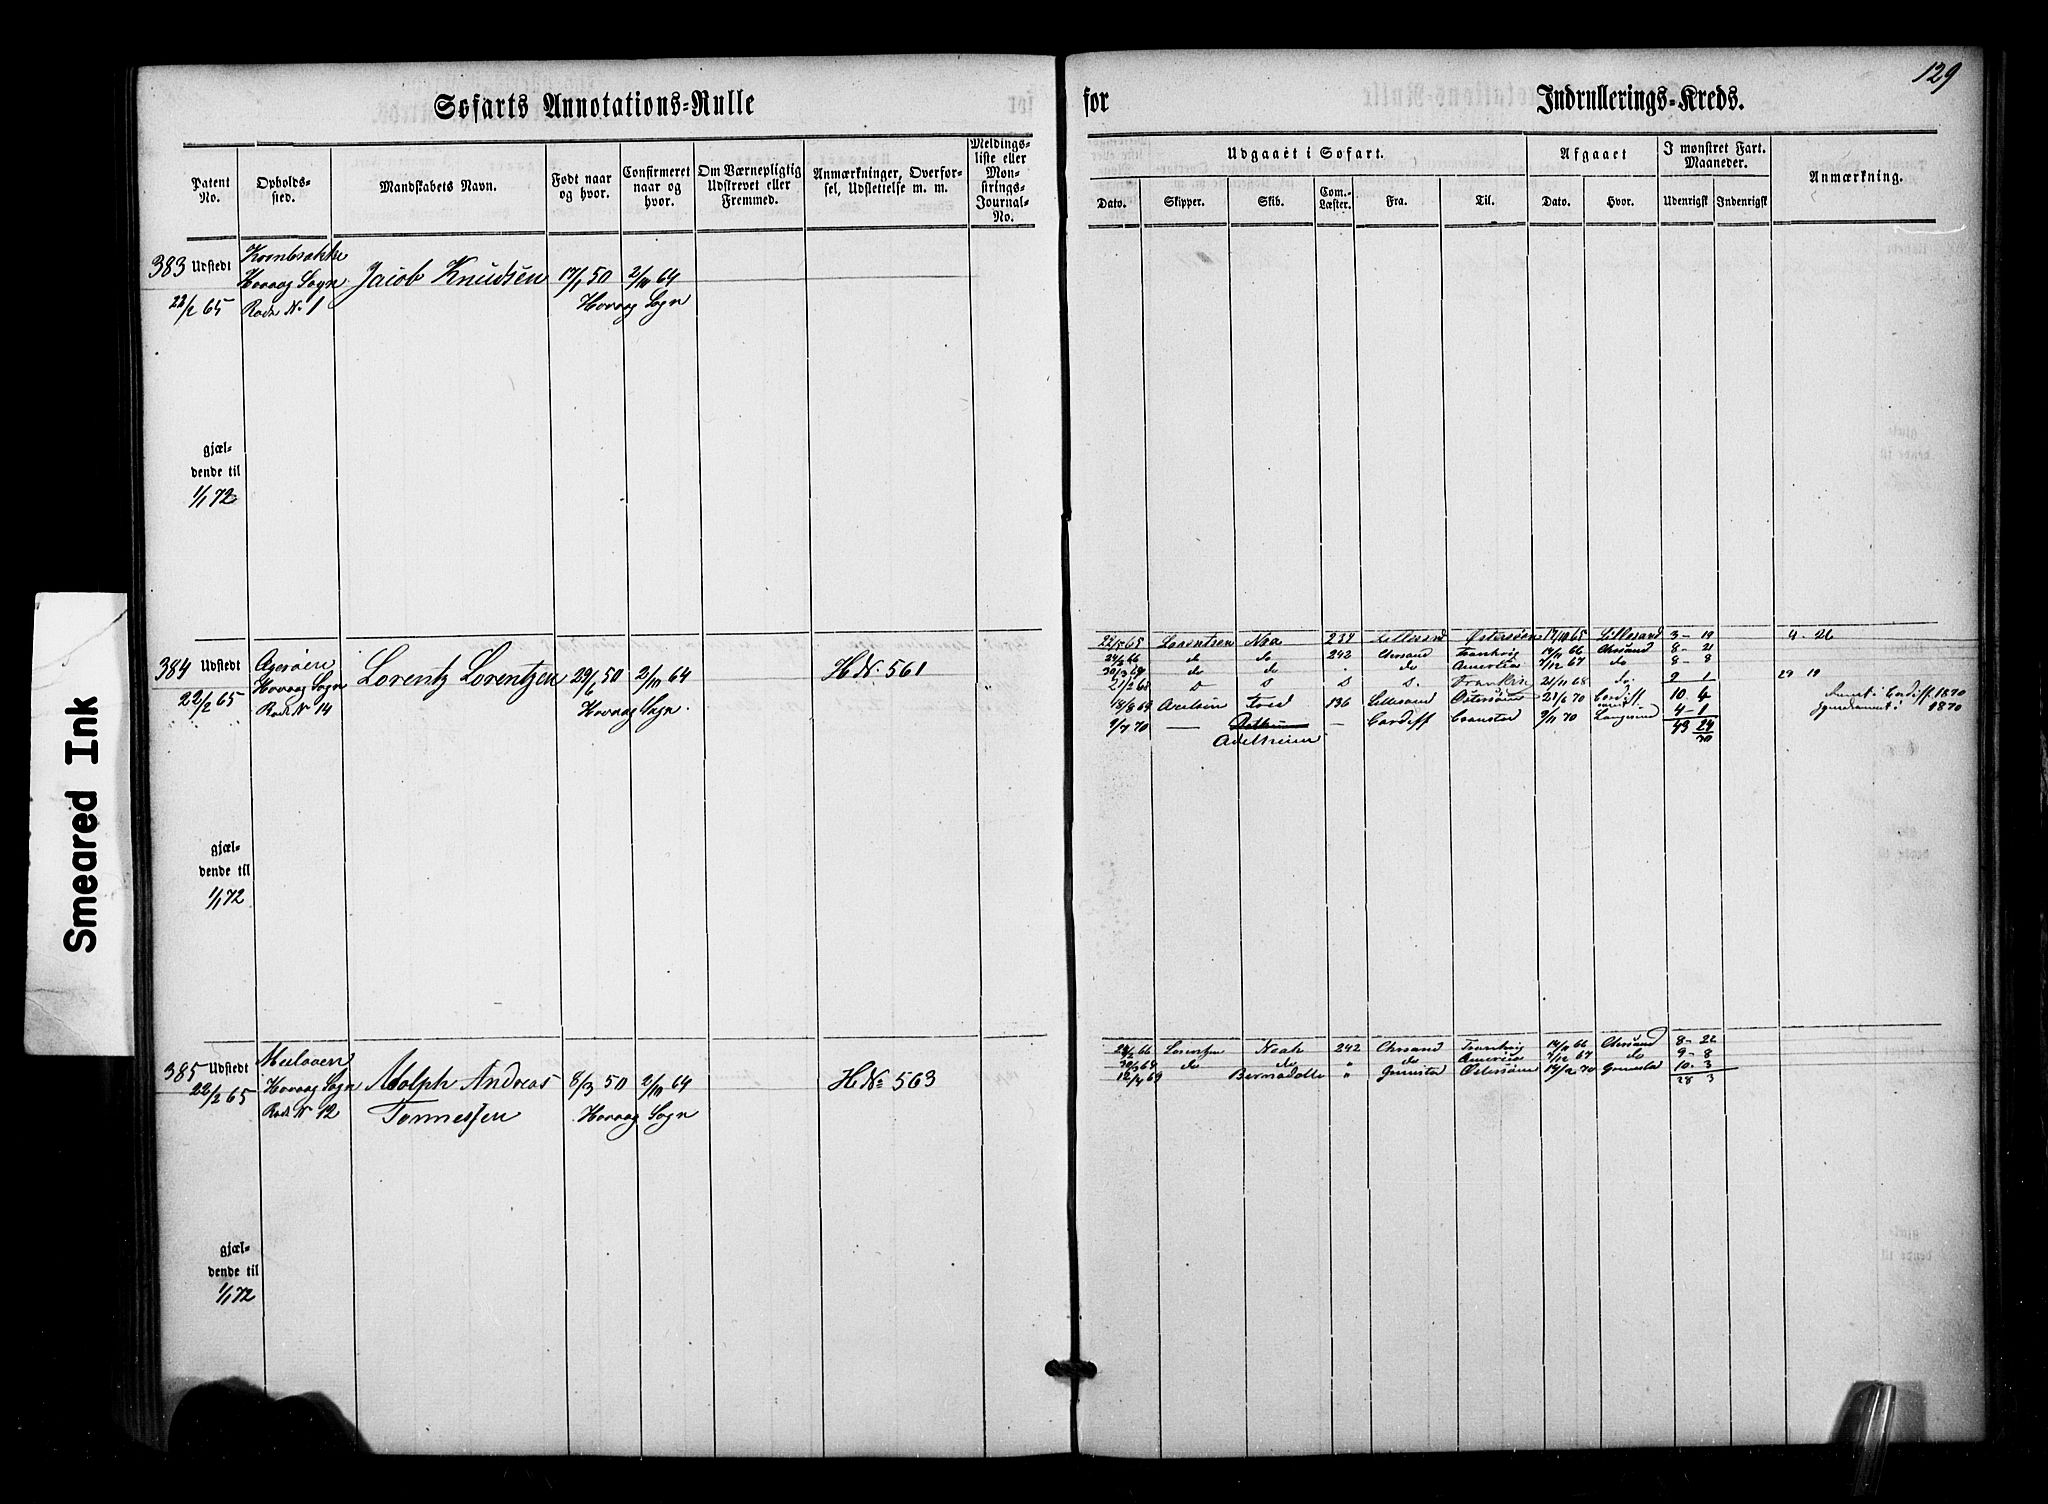 129
Søfarts Annotations-Rulle for Indrullerings-Kreds.
Patent No.
Opholds-sted.
Mandskabets Navn.
Født naar og hvor.
Confirmeret naar og hvor.
Om Værnepligtig Udskrevet eller Fremmed.
Anmærkninger, Overfør-sel, Udslettelse m. m.
Meldings-liste eller Mon-strings-Journal-No.
Udgaaet i Søfart.
Afgaaet
I mønstret Fart. Maaneder.
Anmærkning.
Dato.
Skipper.
Skib.
Com.-Læster.
Fra.
Til.
Dato.
Hvor.
Udenrigsk
Indenrigsk
383 Udstedt
22/2 65
Hovaag Sogn
Rode No 1
Jacob Knudsen
17/1 50
2/10 64
Hovaag Sogn
gjæl-
dende til
1/1 72
384 Udstedt
22/2 65
Ageröen
Hovaag Sogn
Rode No 14
Lorentz Lorentzen
29/6 50
2/10 64
Hovaag Sogn.
H No. 561
Lorentsen Noa 234 Lillesand Østersøen 17/10 65 Lillesand 3-19
4-26
24/2 66 do do 242 Chrsand 14/11 66 Chrsand 8-21
30/3 67 do do do 7/12 67 do 8-8
21/2 68 21/11 68 do 2 1
29 19
18/8 69 136 Lillesand Østersøen 70 Cardiff 10 4
1870
9/7 70 — Adelheim — Cardiff 9/11 70 Langesund 4-1
1870
43 24/30
gjæl-
dende til
1/1 72
385 Udstedt
22/2 65
Hovaag Sogn
Rode No 12
Adolph Andreas
Tonnessen
8/3 50
2/10 64
Hovaag Sogn
H No 563
24/2 66 Lorentzen Noah 242 Chrsand 14/11 66 Chrsand 8-22
30/3 67 do do " do 7/12 67 do 9-8
12/4 69 " Østersøen 14/2 70 10-3
28 3
gjæl-
dende til
1/1 72
Smeared Ink